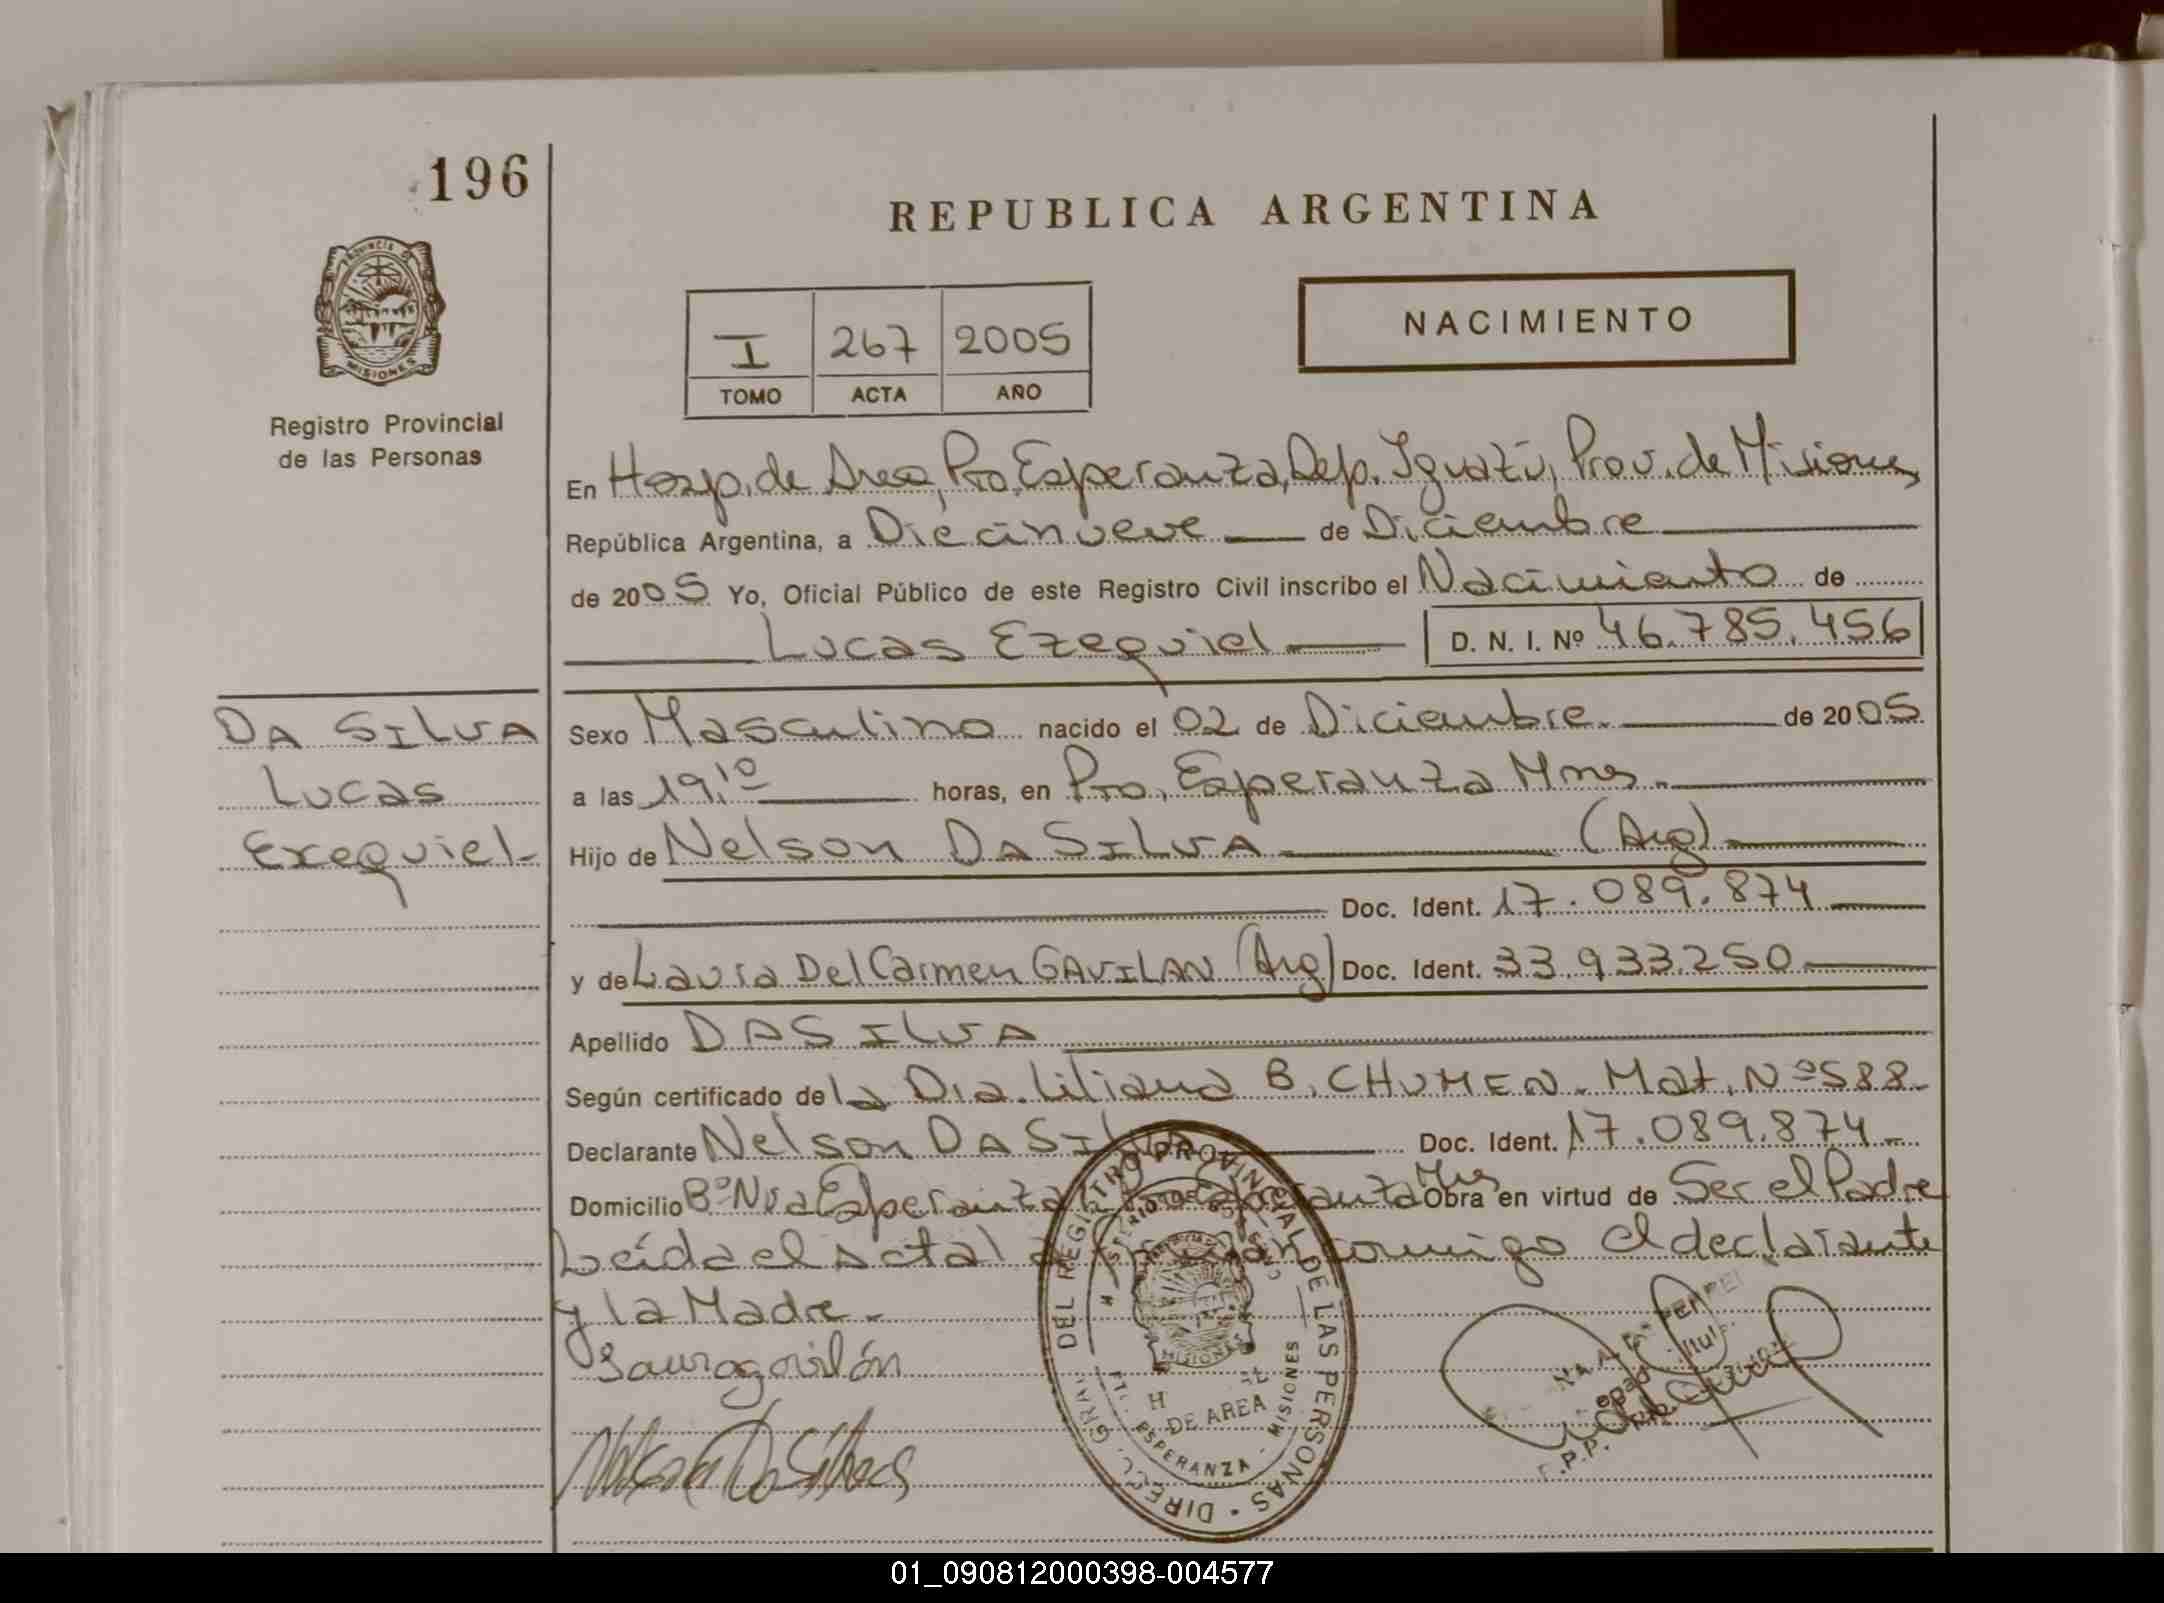 196
REPUBLICA ARGENTINA
PROVINCIA DE
MISIONES
NACIMIENTO
I 267 2005
TOMO ACTA AÑO
Registro Provincial
de las Personas
En Hosp. de Area, Pto. Esperanza, Dep. Iguazú, Prov. de Misiones
República Argentina, a Diecinueve de Diciembre
de 2005 Yo, Oficial Público de este Registro Civil inscribo el Nacimiento de
Lucas Ezequiel D. N. I. Nº 46.785.456
DA SILVA
Lucas
Ezequiel-
Sexo Masculino nacido el 02 de Diciembre. de 2005
a las 19.10 horas, en Pto. Esperanza Mnes.
Hijo de Nelson DA SILVA (Arg)
Doc. Ident. 17.089.874
y de Laura Del Carmen GAVILAN (Arg) Doc. Ident. 33.933.250
Apellido DA SILVA
Según certificado de la Dra. Liliana B. CHUMEN. Mat. Nº 588-
Declarante Nelson DA SILVA Doc. Ident. 17.089.874-
Domicilio Bº Nva Esperanza Esperanza Mns Obra en virtud de Ser el Padre
Leída el acta conmigo el declarante
y la Madre.
Laura gavilán
Nelson Da Silva
DIREC. GRAL. DEL REGISTRO PROVINCIAL DE LAS PERSONAS
MISIONES
DE AREA
ESPERANZA - MISIONES
01_090812000398-004577